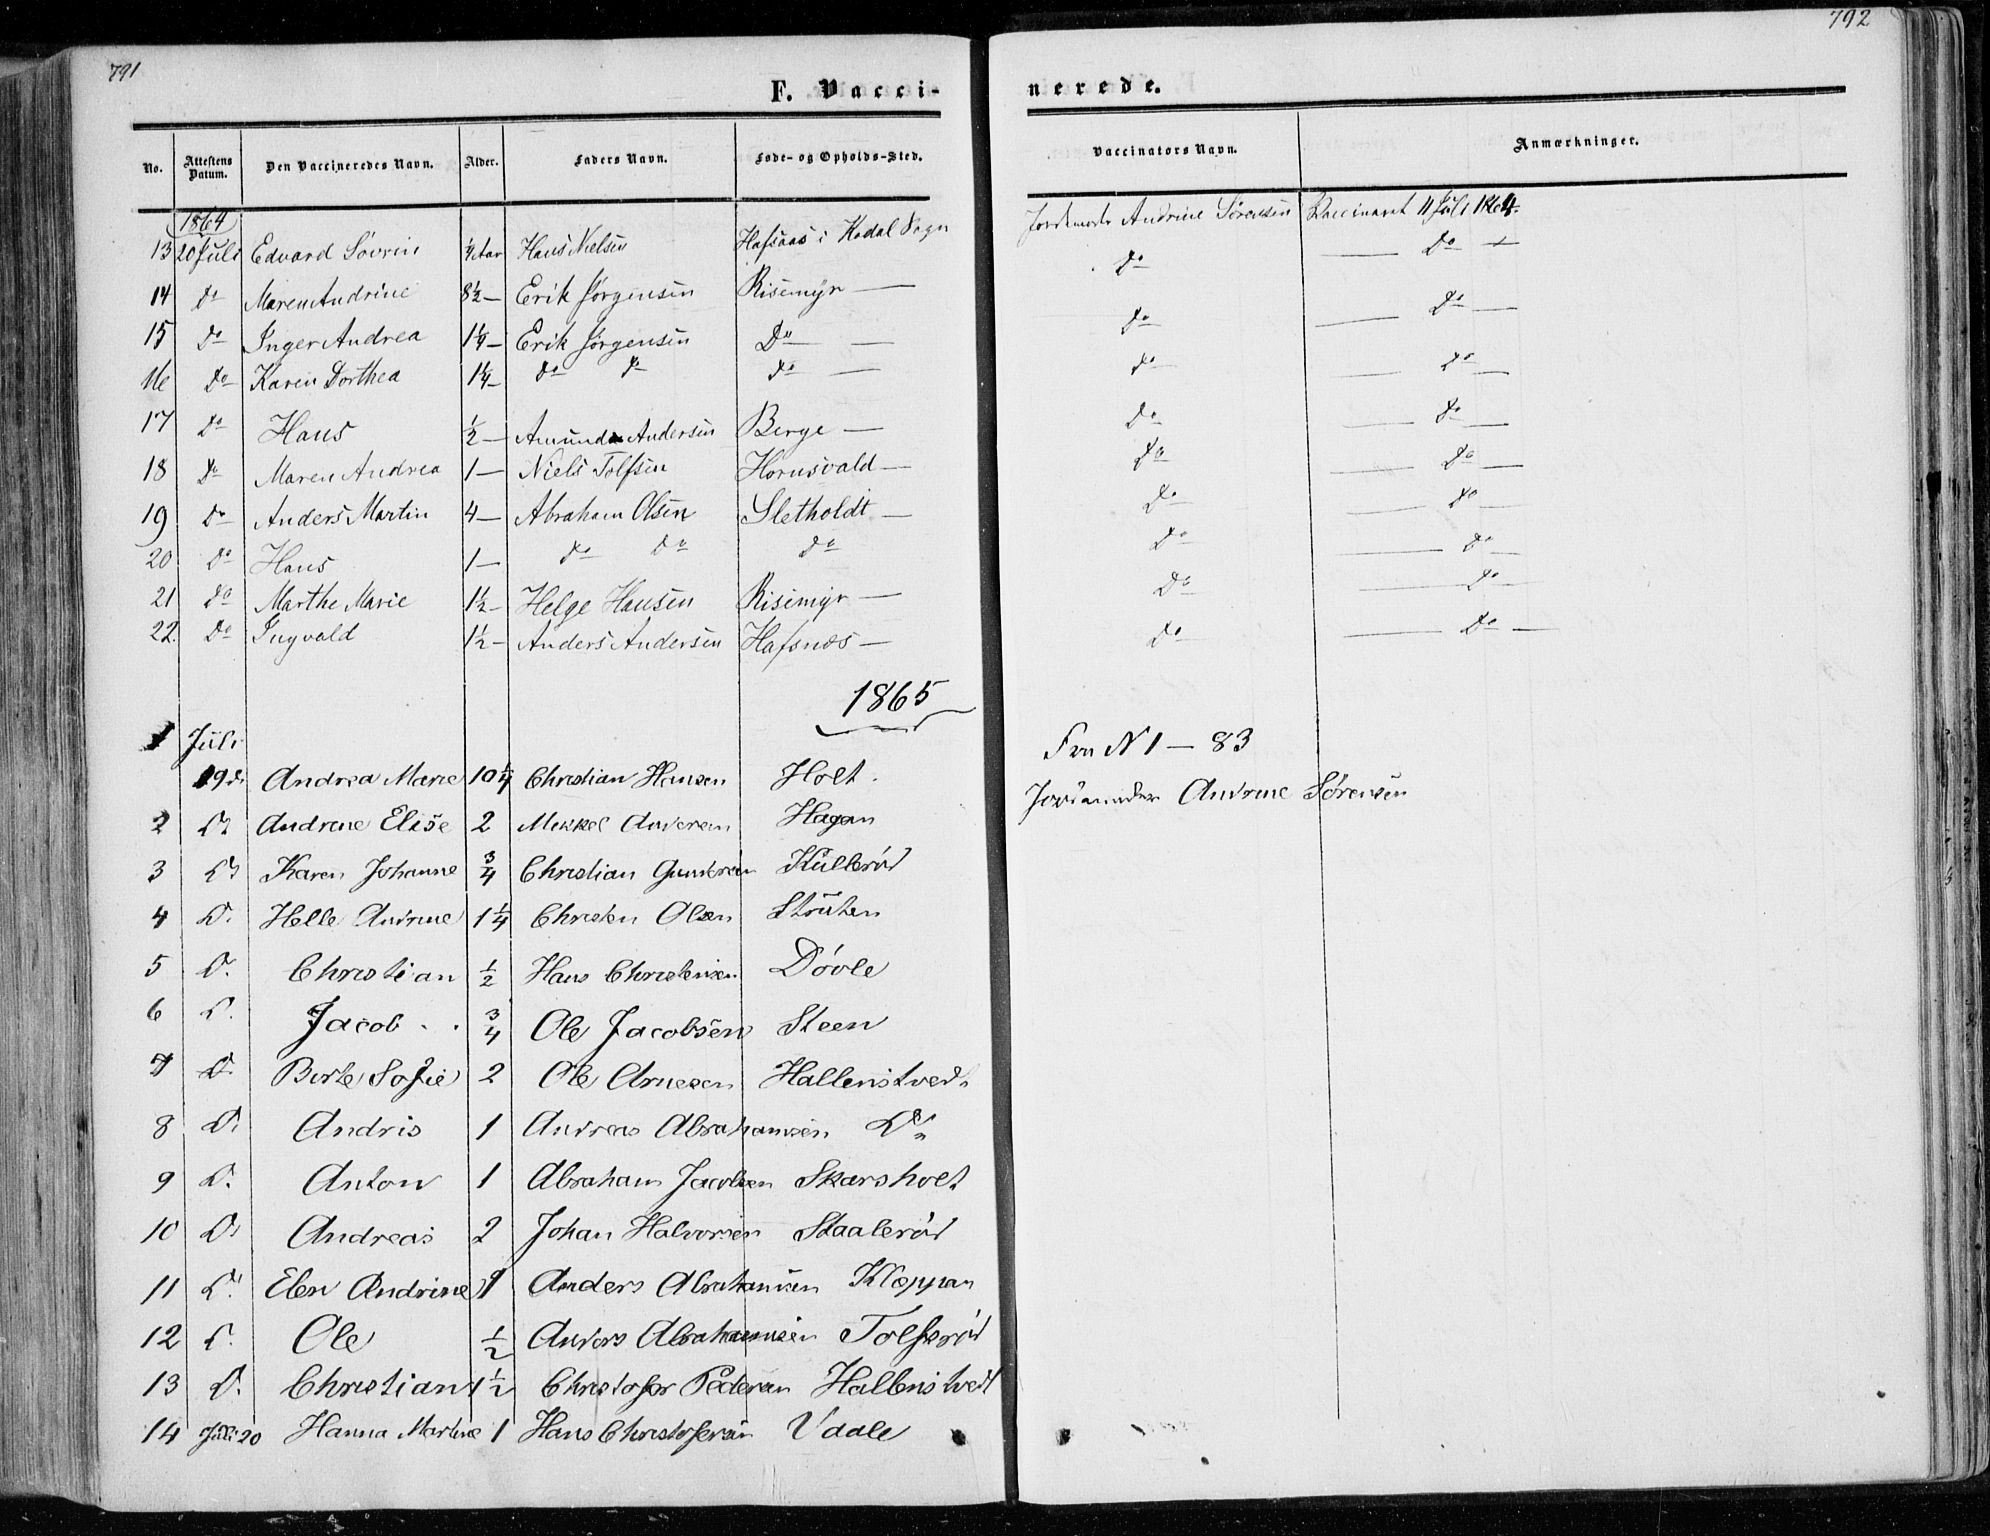 791
792
F. Vacci-
nerede.
No. Attestens Datum. Den Vaccineredes Navn. Alder. Faders Navn. Føde- og Opholds-Sted. Vaccinators Navn. Anmærkninger.
1864
13 20 Juli Edvard Søvrin ¼ Aar Hans Nielsen Hafsaas i Kodal Sogn Jordemoder Andrine Sørensen Vaccineret 11 Juli 1864.
14 Do Maren Andrine 8½ — Erik Jørgensen Risemyr — Do — Do —
15 Do Inger Andrea 1¼ — Erik Jørgensen Do — Do — Do —
16 Do Karen Dorthea 1¼ — Do Do Do — Do — Do —
17 Do Hans ½ — Amund Andersen Berge — Do — Do —
18 Do Maren Andrea 1 — Niels Tolfsen Hornsvald — Do — Do —
19 Do Anders Martin 4 — Abraham Olsen Sletholdt — Do — Do —
20 Do Hans 1 — Do Do Do Do — Do —
21 Do Marthe Marie 1½ — Helge Hansen Risemyr — Do — Do —
22. Do Ingvald 1½ — Anders Andersen Hafsnes — Do — Do —
1865
1 Juli
Fra N 1 — 83
19 d. Andrea Marie 10¼ Christian Hansen Holt. Jordemoder Andrine Sørensen
2 Do Andrine Elise 2 Mikkel Andersen Hagan
3 Do Karen Johanne ¾ Christian Gundersen Kullerød
4 D. Helle Andrine 1¼ Christen Olsen Struten
5 D. Christian ½ Hans Christensen Døvle
6 D. Jacob . . ¾ Ole Jacobsen Steen
7 D. Berte Sofie 2 Ole Arnesen Hallenstved.
8 D. Andris 1 Andreas Abrahamsen Do
9 D. Anton 1 Abraham Jacobsen Skarsholt
10 Do Andreas 2 Johan Halvorsen Staalerød
11 D. Elen Andrine 1 Anders Abrahamsen Kloppan
12 D. Ole ½ Anders Abrahamsen Tolfsrød
13 D. Christian 1½ Christofer Pedersen Hallenstvedt
14 Juli 20 Hanna Martine 1 Hans Christofersen Vdale